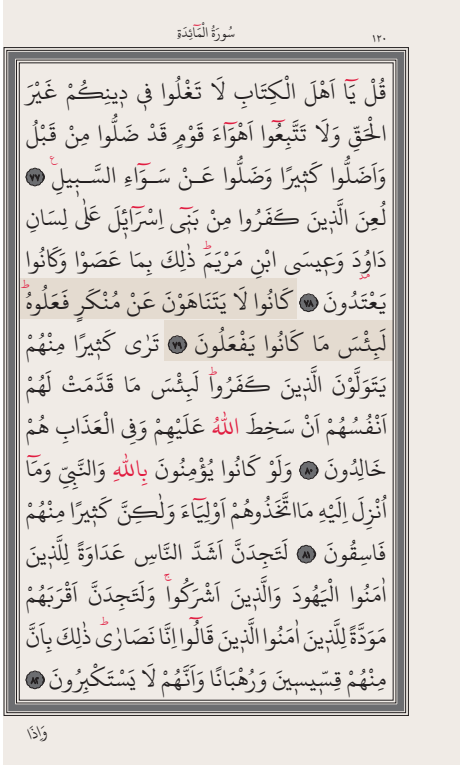 ١٢٠ سُورَةُ الْمَٓائِدَةِ
قُلْ يَٓا اَهْلَ الْكِتَابِ لَا تَغْلُوا ف۪ي د۪ينِكُمْ غَيْرَ
الْحَقِّ وَلَا تَتَّبِعُٓوا اَهْوَٓاءَ قَوْمٍ قَدْ ضَلُّوا مِنْ قَبْلُ
وَاَضَلُّوا كَث۪يرًا وَضَلُّوا عَنْ سَوَٓاءِ السَّب۪يلِۚ ﴿٧٧﴾
لُعِنَ الَّذ۪ينَ كَفَرُوا مِنْ بَن۪ٓي اِسْرَٓائ۪لَ عَلٰى لِسَانِ
دَاوُ۫دَ وَع۪يسَى ابْنِ مَرْيَمَۜ ذٰلِكَ بِمَا عَصَوْا وَكَانُوا
يَعْتَدُونَ ﴿٧٨﴾ كَانُوا لَا يَتَنَاهَوْنَ عَنْ مُنْكَرٍ فَعَلُوهُۜ
لَبِئْسَ مَا كَانُوا يَفْعَلُونَ ﴿٧٩﴾ تَرٰى كَث۪يرًا مِنْهُمْ
يَتَوَلَّوْنَ الَّذ۪ينَ كَفَرُواۜ لَبِئْسَ مَا قَدَّمَتْ لَهُمْ
اَنْفُسُهُمْ اَنْ سَخِطَ اللّٰهُ عَلَيْهِمْ وَفِي الْعَذَابِ هُمْ
خَالِدُونَ ﴿٨٠﴾ وَلَوْ كَانُوا يُؤْمِنُونَ بِاللّٰهِ وَالنَّبِيِّ وَمَٓا
اُنْزِلَ اِلَيْهِ مَا اتَّخَذُوهُمْ اَوْلِيَٓاءَ وَلٰكِنَّ كَث۪يرًا مِنْهُمْ
فَاسِقُونَ ﴿٨١﴾ لَتَجِدَنَّ اَشَدَّ النَّاسِ عَدَاوَةً لِلَّذ۪ينَ
اٰمَنُوا الْيَهُودَ وَالَّذ۪ينَ اَشْرَكُواۚ وَلَتَجِدَنَّ اَقْرَبَهُمْ
مَوَدَّةً لِلَّذ۪ينَ اٰمَنُوا الَّذ۪ينَ قَالُٓوا اِنَّا نَصَارٰىۜ ذٰلِكَ بِاَنَّ
مِنْهُمْ قِسّ۪يس۪ينَ وَرُهْبَانًا وَاَنَّهُمْ لَا يَسْتَكْبِرُونَ ﴿٨٢﴾
وَاِذَا